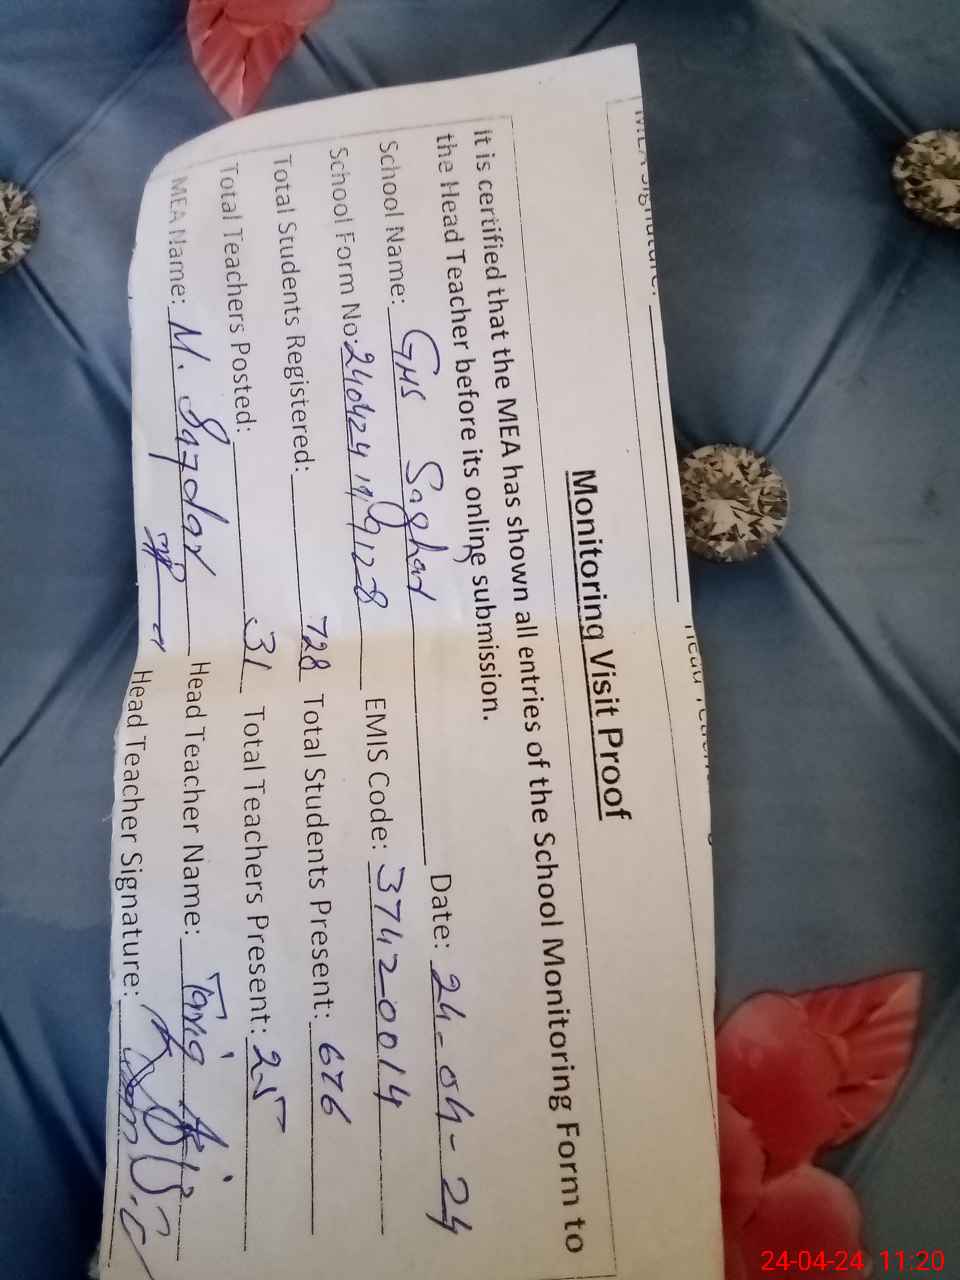 MEA Signature:
Monitoring Visit Proof
It is certified that the MEA has shown all entries of the School Monitoring Form to
the Head Teacher before its online submission.
School Name: GHS Saghar Date: 24-04-24
School Form No: EMIS Code: 37420014
Total Students Registered: 728 Total Students Present: 676
Total Teachers Posted: 31 Total Teachers Present: 25
MEA Name: M. Safdar Head Teacher Name: Tariq
Head Teacher Signature:
24-04-24 11:20